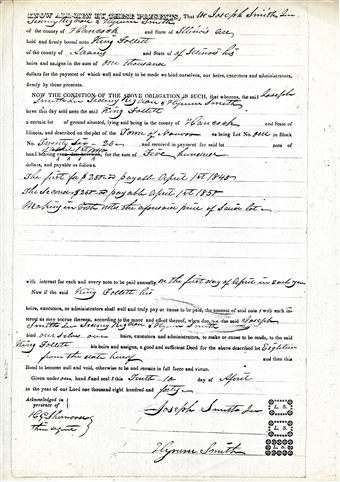 KNOW ALL MEN BY THESE PRESENTS, That We Joseph Smith Jun
Sidney Rigdon & Hyrum Smith
of the county of Hancock and State of Illinois are
held and firmly bound unto King Follett
of the county of and State of Illinois his
heirs and assigns in the sum of one thousand
dollars for the payment of which well and truly to be made we bind ourselves, our heirs, executors and administrators,
firmly by these presents.
NOW THE CONDITION OF THE ABOVE OBLIGATION IS SUCH, that whereas, the said Joseph
Smith Jun Sidney Rigdon & Hyrum Smith
have this day sold unto the said King Follett
a certain lot of ground situated, lying and being in the county of Hancock and State of
Illinois, and described on the plat of the Town of Nauvoo as being Lot No. one in Block
No. Twenty Six - 26 and received in payment for said lot note of
hand bearing for the sum of Five hundred
dollars, and payable as follows.
The first for $250 payable April 1st
The Second $250 payable April 1st
Making in both notes the aforesaid price of said lot
with interest for each and every note to be paid annually on the first day of April in each year
Now if the said King Follett his
heirs, executors, or administrators shall well and truly pay or cause to be paid, the amount of said note s with such in
terest as may accrue thereon, according to the tenor and effect thereof, when due the said Joseph
Smith Jun Sidney Rigdon & Hyrum Smith
bind our selves our heirs, executors and administrators, to make or cause to be made, to the said
King Follett his heirs and assigns, a good and sufficient Deed for the above described lot
from the date hereof and then this
Bond to become null and void, otherwise to be and remain in full force and virtue.
Given under our hand s and seal s this Tenth - 10 day of April
in the year of our Lord one thousand eight hundred and forty
Acknowledged in
presence of
H. G. Sherwood
their agent
Joseph Smith Jun
L. S.
L. S.
Hyrum Smith
L. S.